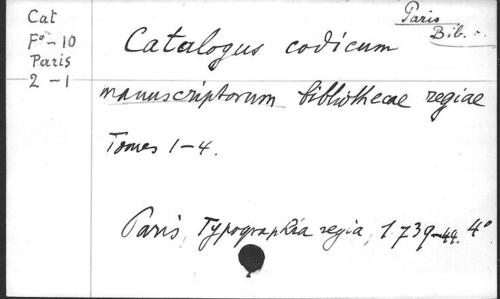 Cat
Fº - 10
Paris
2 - 1
Paris
Bib. r.
Catalogus codicum
manuscriptorum bibliothecae regiae
Tomes 1-4.
Paris, Typographia regia, 1739-44. 4º